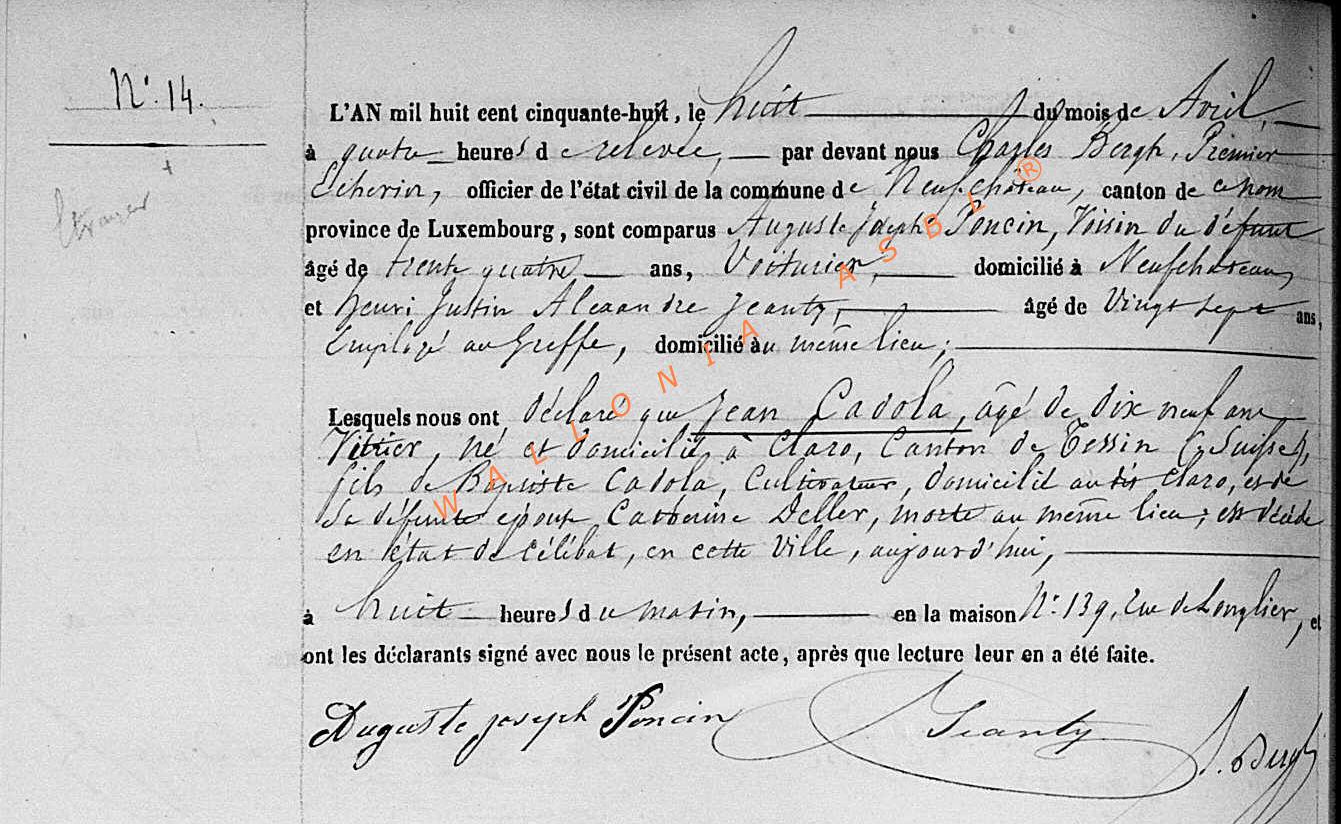 N° 14.
Etranger
L'AN mil huit cent cinquante-huit, le huit du mois de Avril,
à quatre heures de relevée, par devant nous Charles Bergh, Premier
Echevin, officier de l'état civil de la commune de Neufchâteau, canton de ce nom
province de Luxembourg, sont comparus Auguste Joseph Poncin, Voisin du défunt
âgé de trente quatre ans, Voiturier, domicilié à Neufchateau,
et henri Justin Alexandre Jeanty, âgé de Vingt sept ans,
Employé au Greffe, domicilié au même lieu;
Lesquels nous ont déclaré que Jean Cadola, âgé de dix neuf ans
Vitrier, né et domicilié à Claro, Canton de Tessin (Suisse),
fils de Baptiste Cadola, Cultivateur, domicilié au dit Claro, et de
Sa défunte epouse Catherine Deller, morte au même lieu; est décédé
en état de célibat, en cette Ville, aujourd'hui,
à huit heures du matin, en la maison N° 139, rue de Longlier, et
ont les déclarants signé avec nous le présent acte, après que lecture leur en a été faite.
Auguste joseph Poncin Jeanty Bergh
WALLONIA ASBL ®